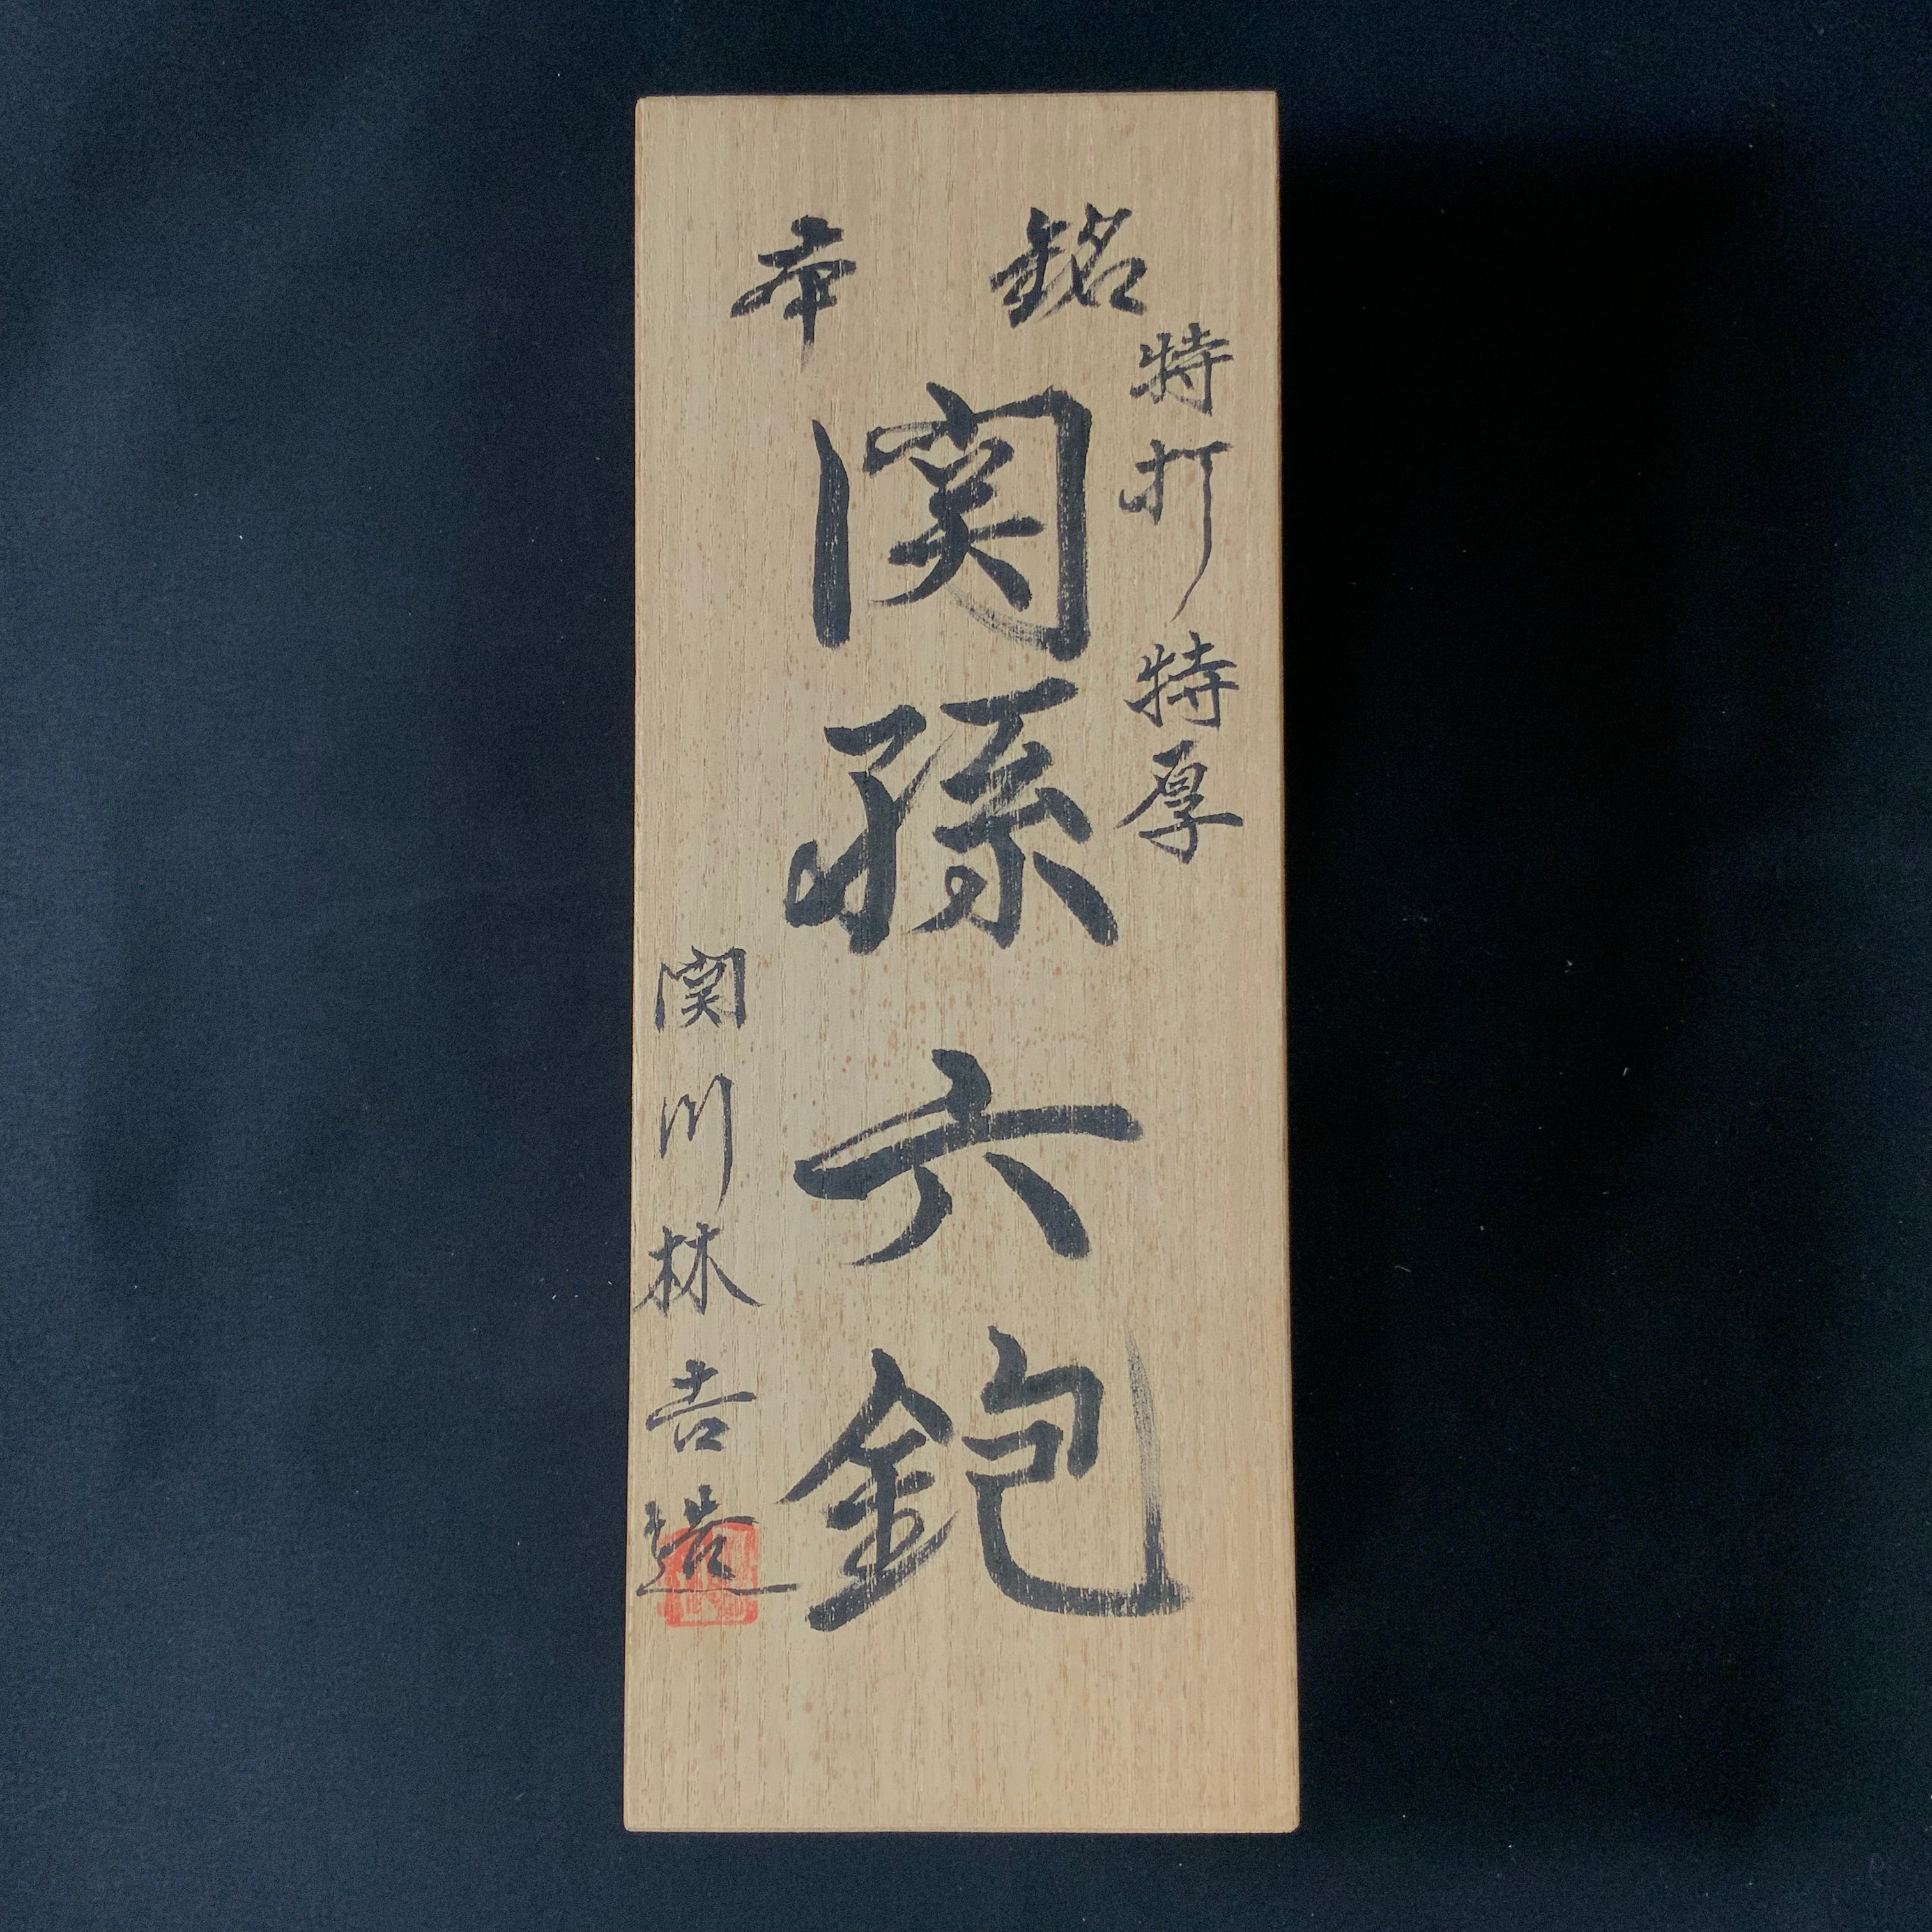 銘
特打 特厚
関孫六鉋
関川林吉造